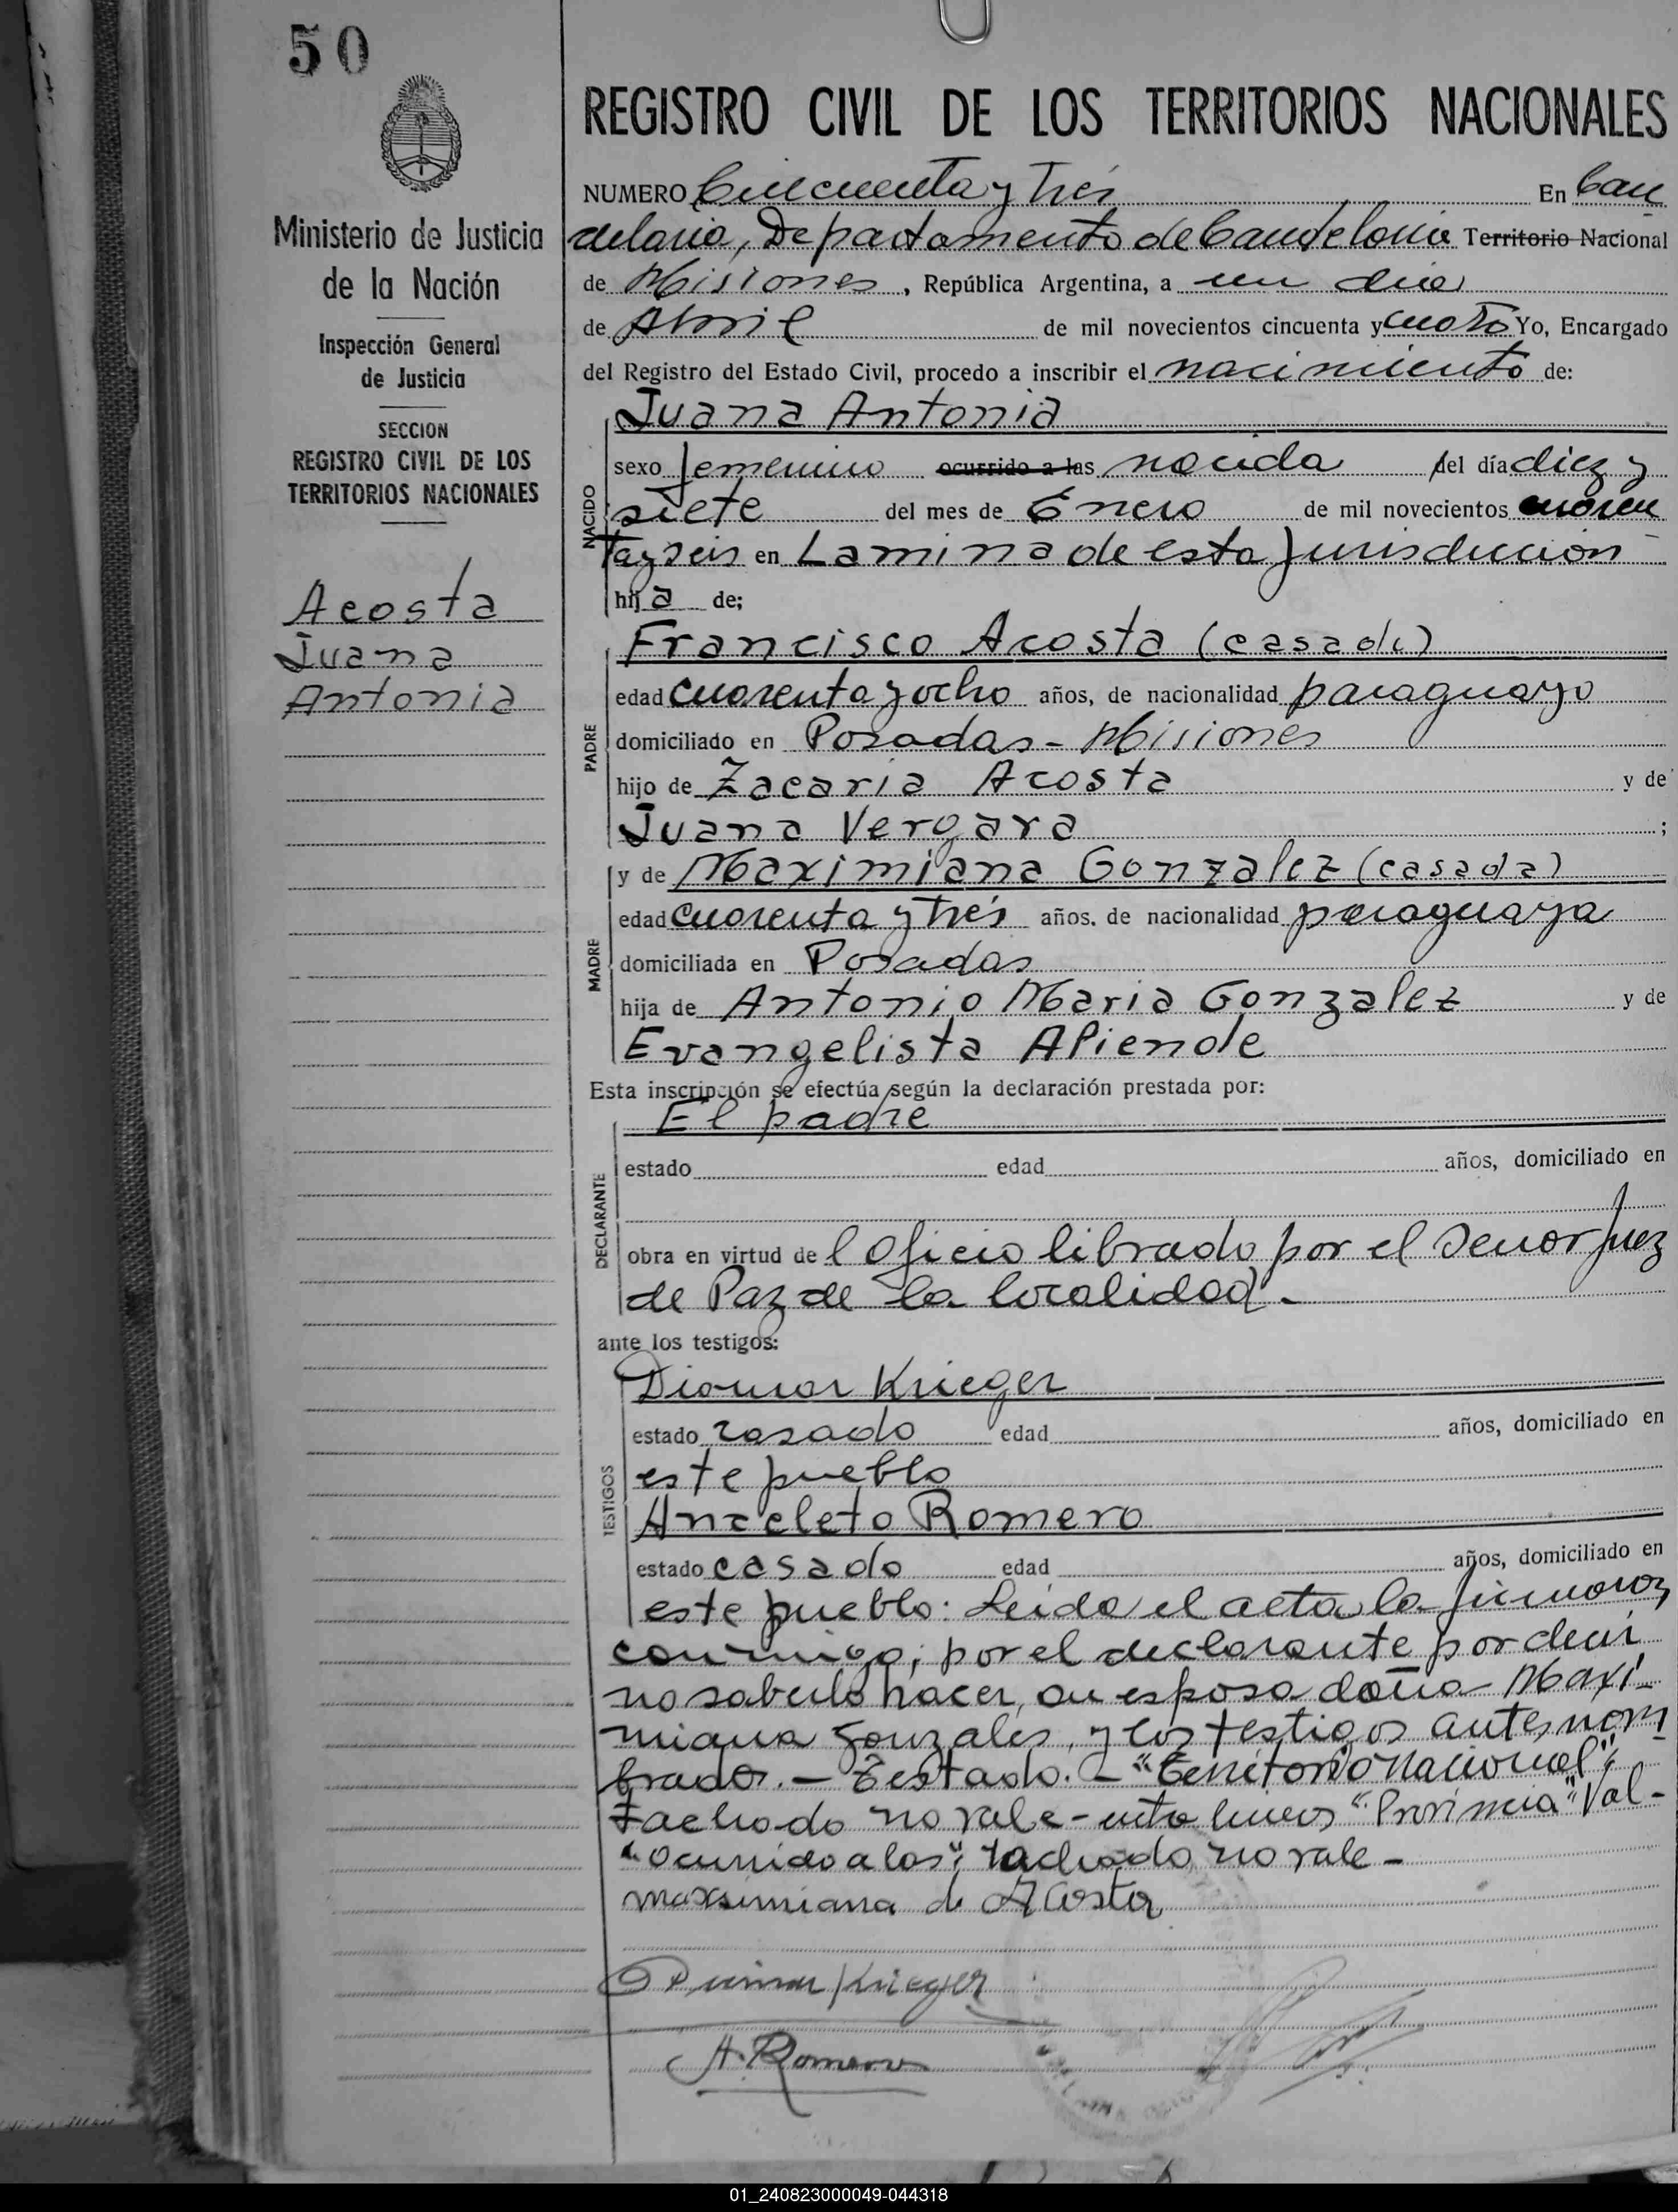 50
Ministerio de Justicia
de la Nación
Inspección General
de Justicia
SECCION
REGISTRO CIVIL DE LOS
TERRITORIOS NACIONALES
Acosta
Juana
Antonia
REGISTRO CIVIL DE LOS TERRITORIOS NACIONALES
NUMERO Cincuenta y Trés En Can
delaria, Departamento de Candelaria Territorio Nacional
de Misiones, República Argentina, a un dia
de Abril de mil novecientos cincuenta y cuatro Yo, Encargado
del Registro del Estado Civil, procedo a inscribir el nacimiento de:
Juana Antonia
NACIDO
sexo femenino ocurrido a las nacida del día diez y
siete del mes de Enero de mil novecientos cuaren
ta y seis en La mina de esta Jurisdiccion
hija de;
Francisco Acosta (casado)
PADRE
edad cuarenta y ocho años, de nacionalidad paraguayo
domiciliado en Posadas - Misiones
hijo de Zacaria Acosta y de
Juana Vergara ;
y de Maximiana Gonzalez (casada)
MADRE
edad cuarenta y trés años, de nacionalidad paraguaya
domiciliada en Posadas
hija de Antonio Maria Gonzalez y de
Evangelista Aliende
Esta inscripción se efectúa según la declaración prestada por:
El padre
DECLARANTE
estado edad años, domiciliado en
obra en virtud del Oficio librado por el Señor Juez
de Paz de la localidad.-
ante los testigos:
Diomar Krieger
TESTIGOS
estado casado edad años, domiciliado en
este pueblo
Anacleto Romero
estado casado edad años, domiciliado en
este pueblo: Leida el acta la firmaron
conmigo; por el declarante por decir
no saberlo hacer, su esposa doña Maxi-
miana Gonzales, y los testigos antes nom
brados.- Testado.- "Territorio Nacional";
tachado no vale - entre lineas "Provincia" Val-
"ocurrido a las"; tachado no vale -
maxsimiana de Acosta
Diomar Krieger
A. Romero
01_240823000049-044318